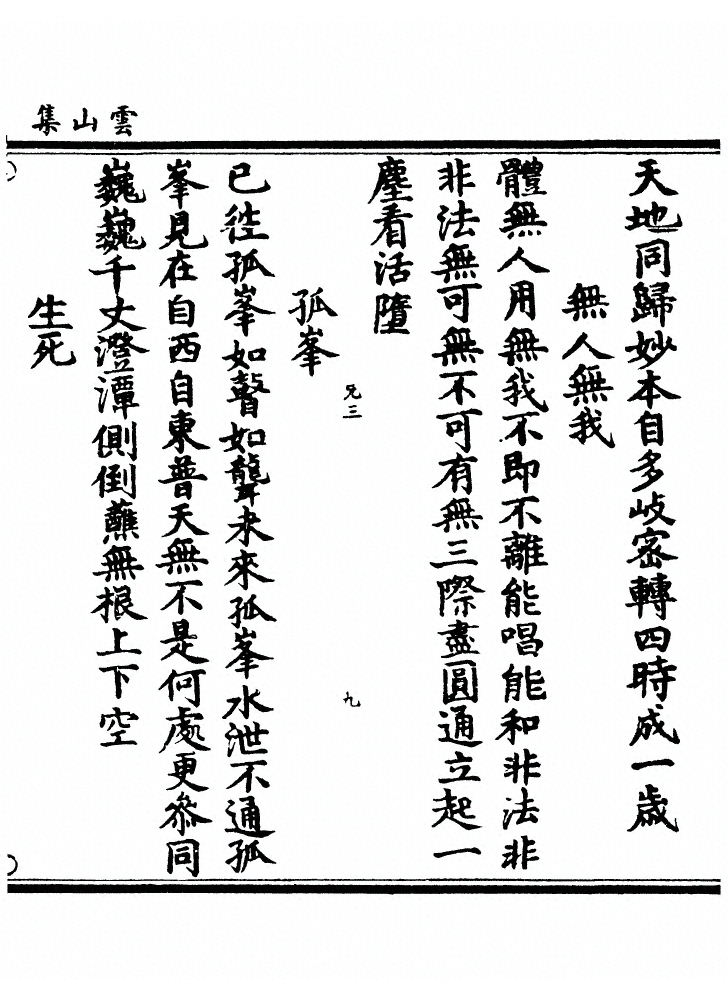 雲山集
天地同歸妙本自多岐密轉四時成一歲
無人無我
體無人用無我不即不離能唱能和非法非
非法無可無不可有無三際盡圓通立起一
塵看活墮
兄三
九
孤峯
已徃孤峯如瞽如聾未來孤峯水泄不通孤
峯見在自西自東普天無不是何處更叅同
巍巍千丈澄潭側倒蘸無根上下空
生死